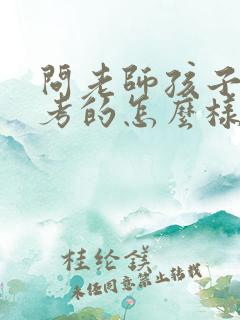 問老師孩子
考的怎麼樣
桂纶鎂
未经同意禁止转载